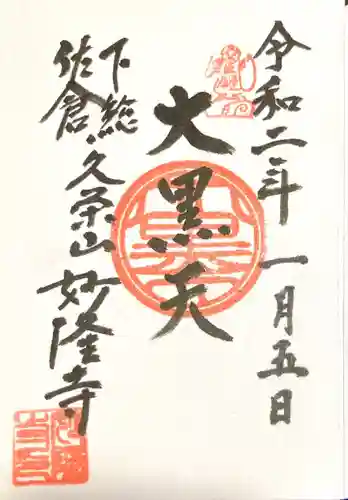 令和二年一月五日
大黒天
下総
佐倉
久栄山妙隆寺